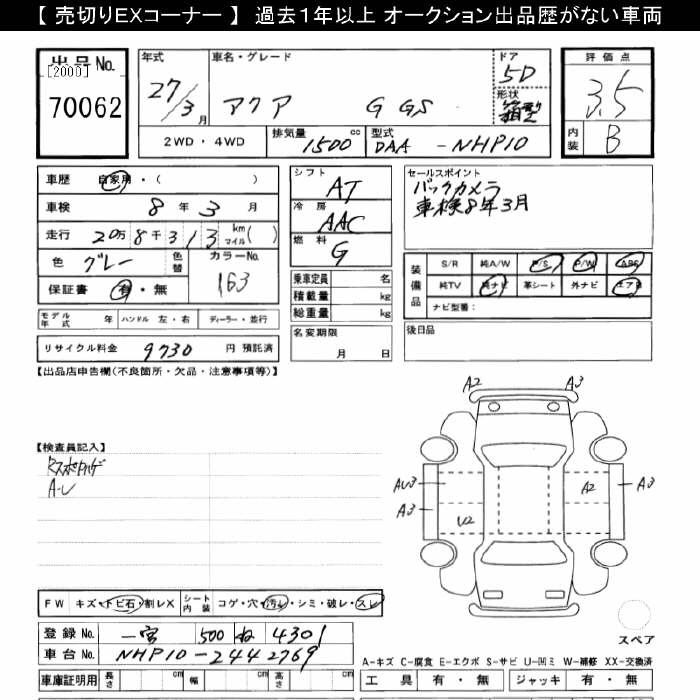 【 売切りEXコーナー 】 過去1年以上 オークション出品歴がない車両
出品No.
[2000]
70062
年式
27/3月
車名・グレード
アクア G GS
ドア
5D
形状
箱型
2WD・4WD
排気量 1500 cc
型式 DAA-NHP10
評価点
3.5
内装 B
車歴 自家用・( )
車検 8年 3月
走行 20万8千313 km マイル( )
色 グレー 色替 カラーNo. 163
保証書 有・無
モデル年式 年 ハンドル 左・右 ディーラー・並行
リサイクル料金 9730 円 預託済
シフト AT
冷房 AAC
燃料 G
乗車定員 名
積載量 kg
総重量 kg
名変期限 月 日
セールスポイント
バックカメラ
車検8年3月
装備品
S/R 純A/W P/S P/W ABS
純TV 純ナビ 革シート 外ナビ エアB
ナビ型番:
後日品
【出品店申告欄(不良箇所・欠品・注意事項等)】
【検査員記入】
A-U
A2 A3
AU3 A2 A3
A3 U2
スペア
FW キズ・トビ石・割レX シート内装 コゲ・穴・汚レ・シミ・破レ・スレ
登録No. 一宮 500 ね 4301
車台No. NHP10-2442769
車庫証明用 長さ cm 幅 cm 高さ cm
A-キズ C-腐食 E-エクボ S-サビ U-凹ミ W-補修 XX-交換済
工具 有・無 ジャッキ 有・無